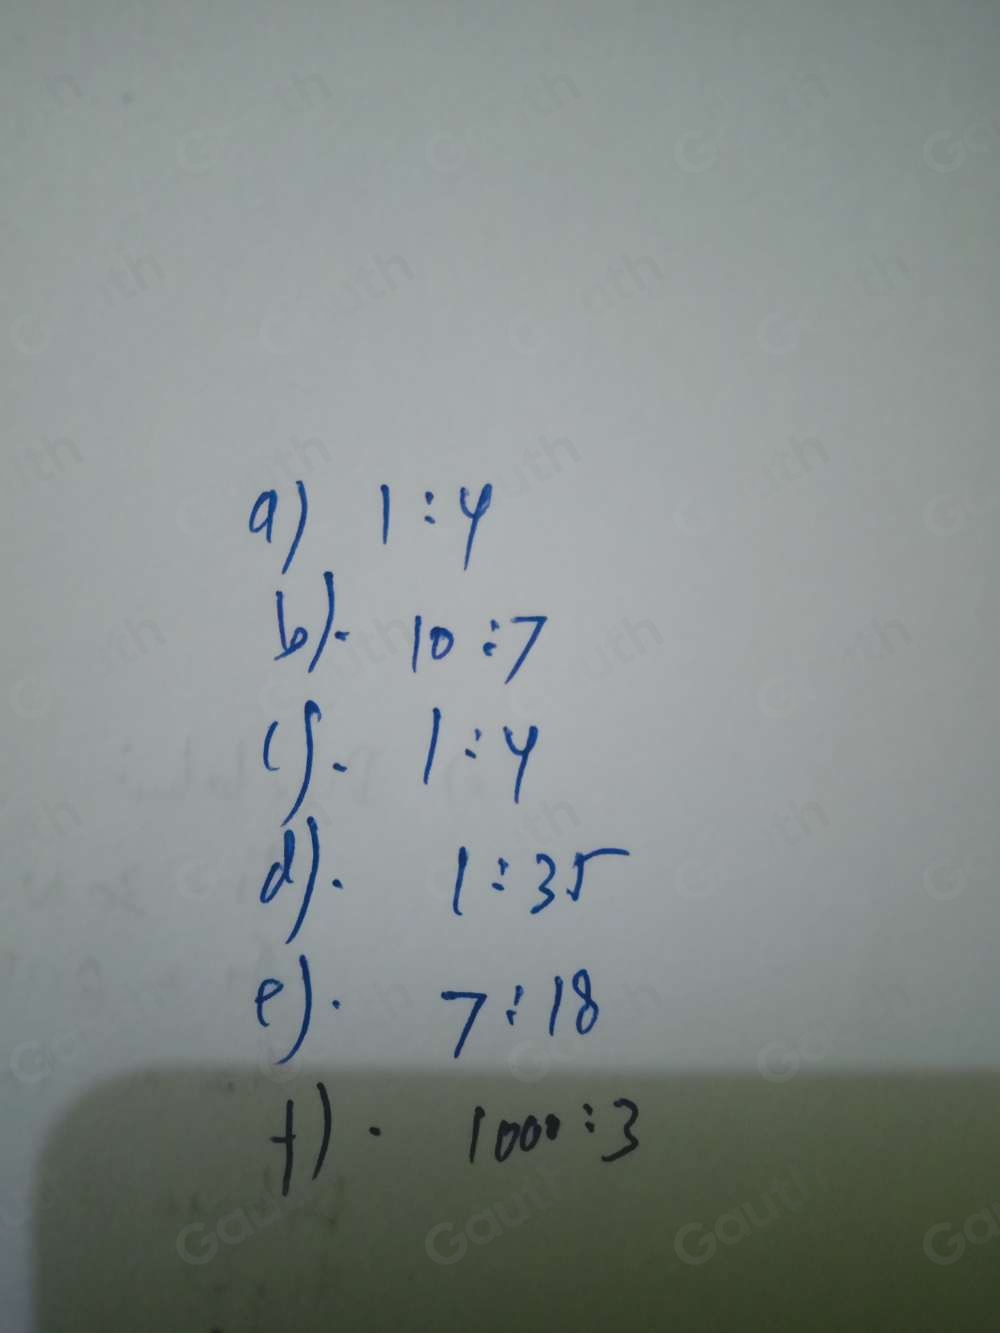 a) 1:4
b). 10:7
c). 1:4
d). 1:35
e). 7:18
f). 1000:3